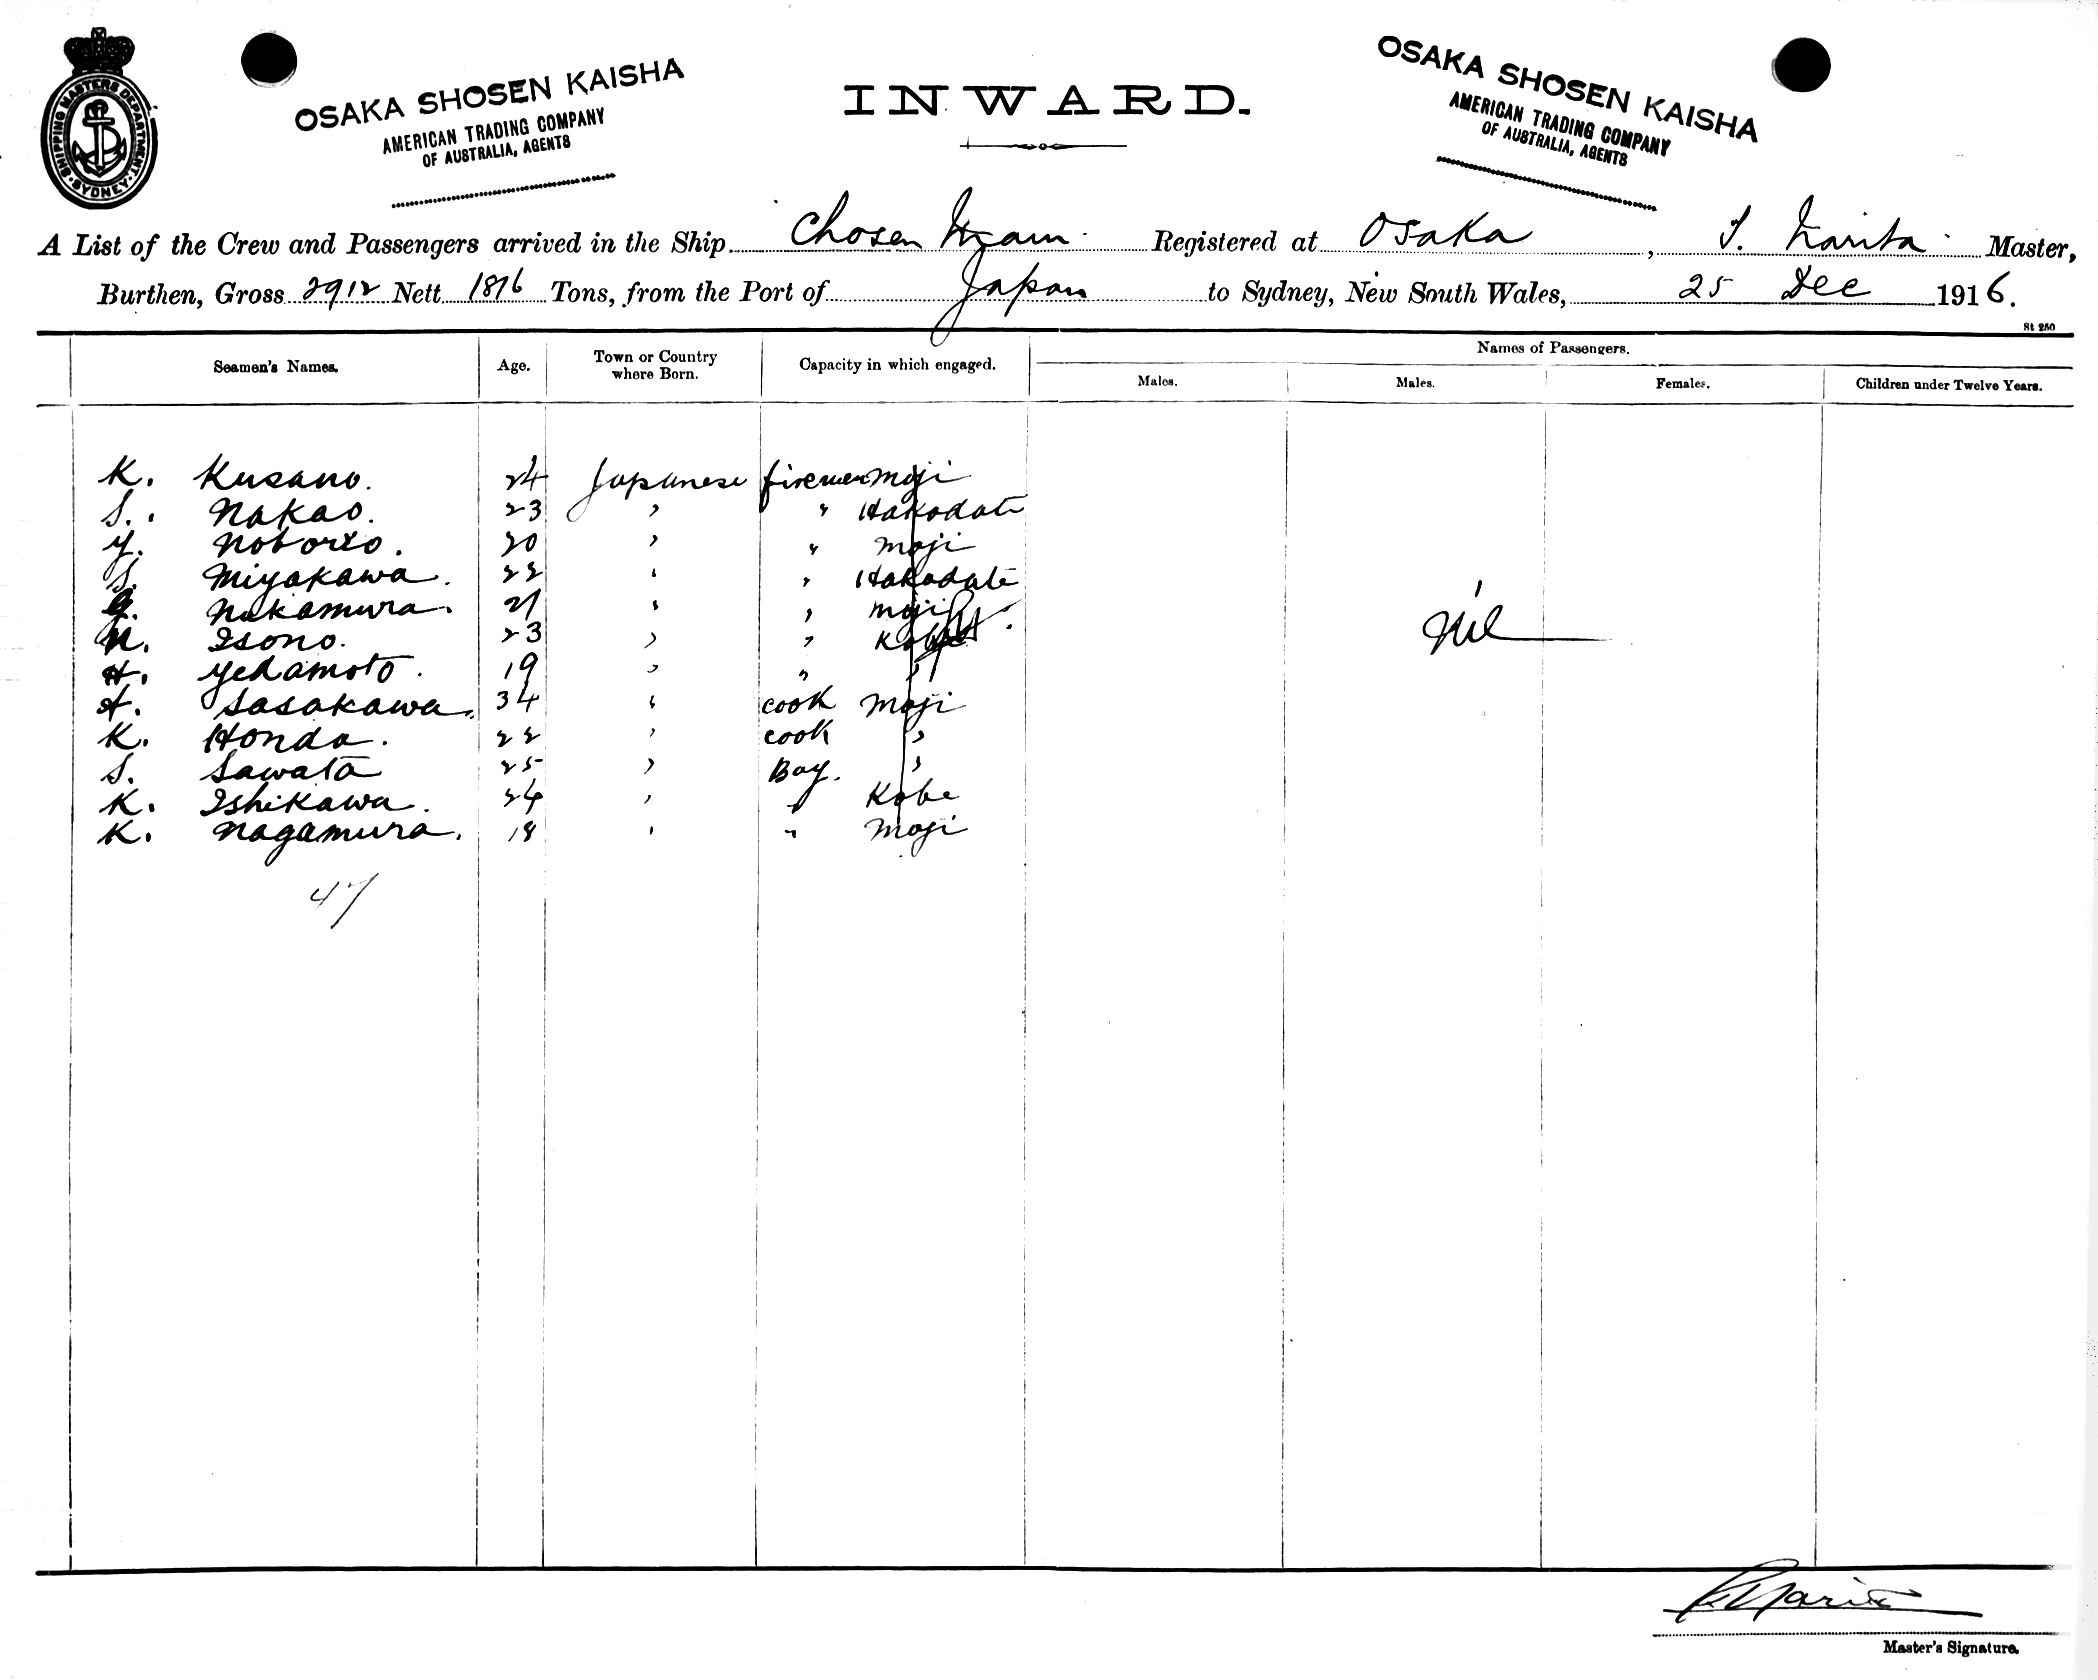 SHIPPING MASTERS DEPARTMENT · SYDNEY ·
OSAKA SHOSEN KAISHA
AMERICAN TRADING COMPANY
OF AUSTRALIA, AGENTS
INWARD.
OSAKA SHOSEN KAISHA
AMERICAN TRADING COMPANY
OF AUSTRALIA, AGENTS
A List of the Crew and Passengers arrived in the Ship Chosen Maru Registered at Osaka, T. Narita Master,
Burthen, Gross 2912 Nett 1876 Tons, from the Port of Japan to Sydney, New South Wales, 25 Dec 1916.
St 250
Seamen's Names. Age. Town or Country where Born. Capacity in which engaged. Names of Passengers.
Males. Males. Females. Children under Twelve Years.
K. Kusano. 24 Japanese firemen Moji
S. Nakao. 23 " " Hakodate
Y. Noborio. 20 " " Moji
S. Miyakawa. 22 " " Hakodate
Nakamura. 21 " " Moji
N. Isono. 23 " " Kobe
H. Yehamoto. 19 " " "
Sasakawa. 34 " cook Moji
K. Honda. 22 " cook "
S. Sawata 25 " Boy. "
K. Ishikawa. 24 " " Kobe
K. Nagamura. 18 " " Moji
Nil
47
Narita
Master's Signature.